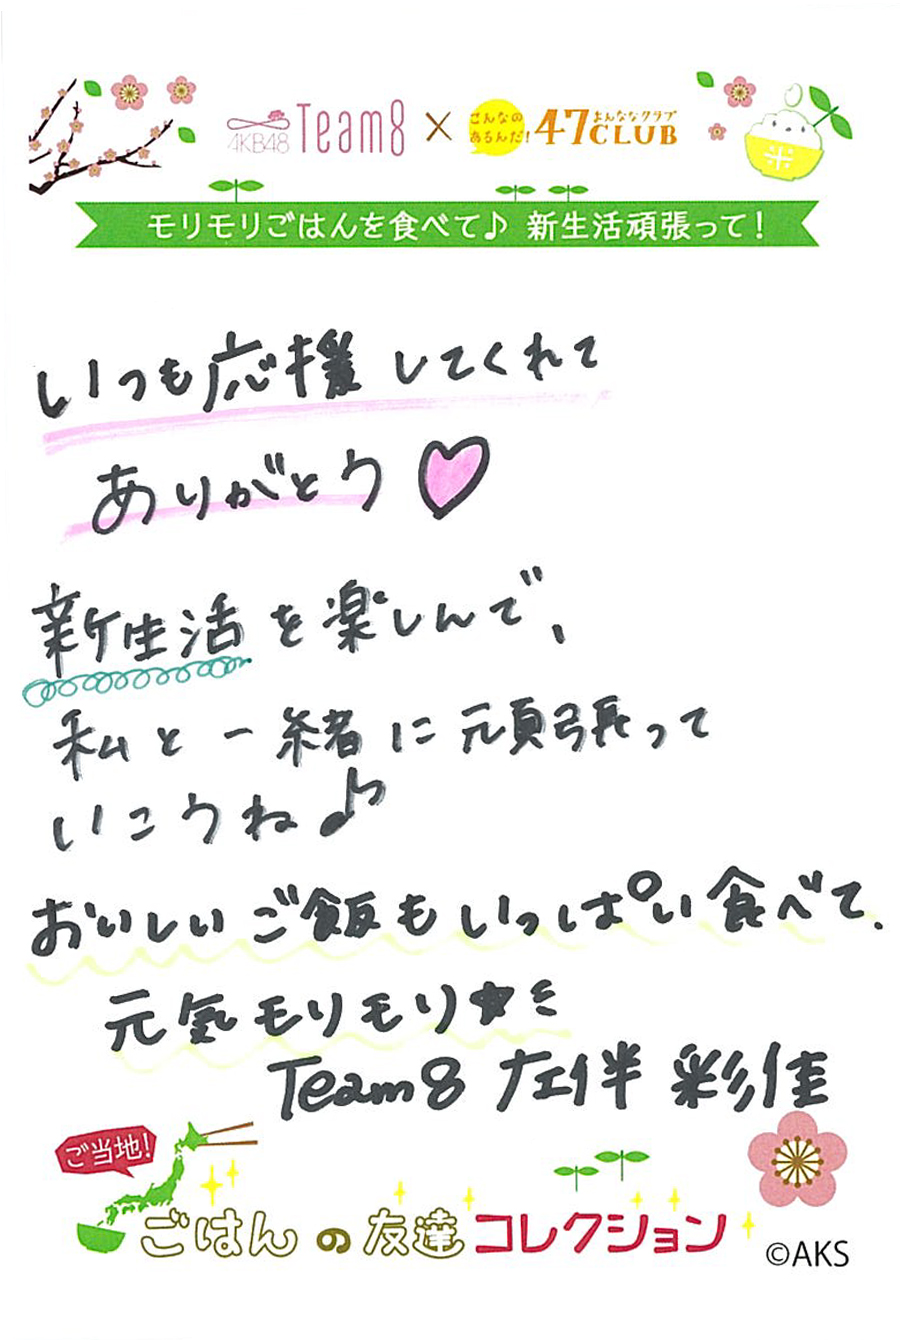 AKB48 Team8 × こんなの あるんだ! 47CLUB よんななクラブ
米
モリモリごはんを食べて♪ 新生活頑張って!
いつも応援してくれて
ありがとう♡
新生活を楽しんで、
私と一緒に頑張って
いこうね♪
おいしいご飯もいっぱい食べて、
元気モリモリ★ミ
Team8 左伴 彩佳
ご当地!
ごはんの友達コレクション
©AKS